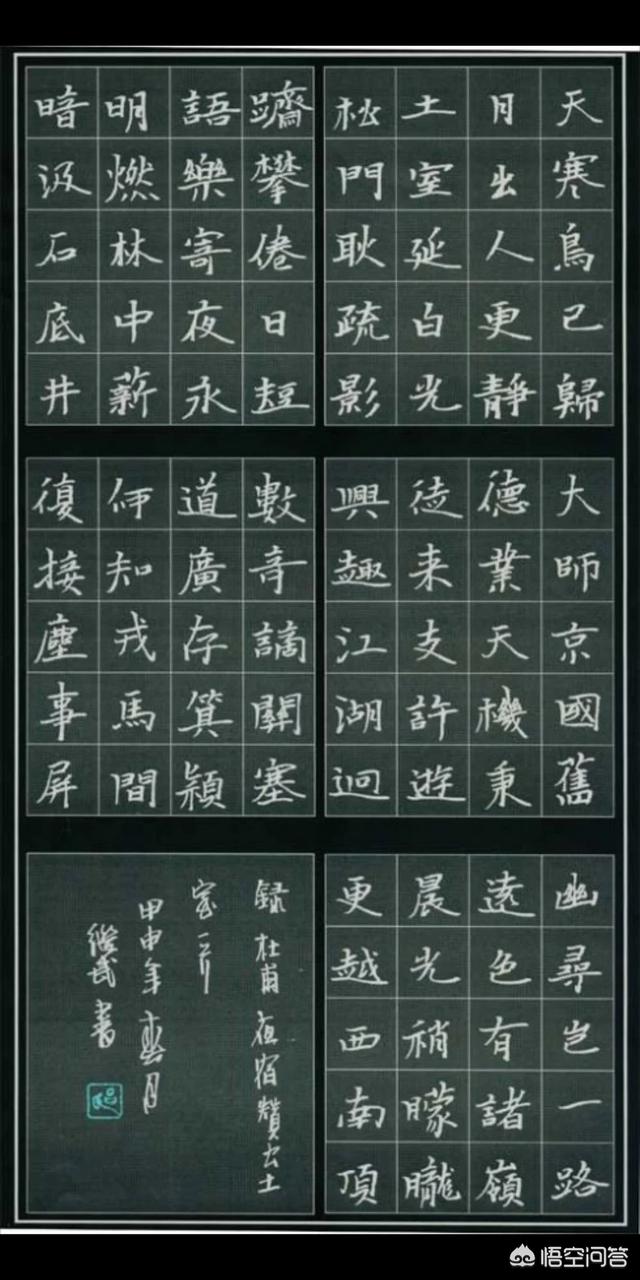 天寒鳥已歸
月出人更靜
土室延白光
松門耿疏影
躋攀倦日短
語樂寄夜永
明燃林中薪
暗汲石底井
大師京國舊
德業天機秉
從来支許遊
興趣江湖迥
數奇謫關塞
道廣存箕潁
何知戎馬間
復接塵事屏
幽尋岂一路
遠色有諸嶺
晨光稍曚曨
更越西南頂
録杜甫夜宿贊公土
室一首
甲申年春月
繼武書
悟空问答